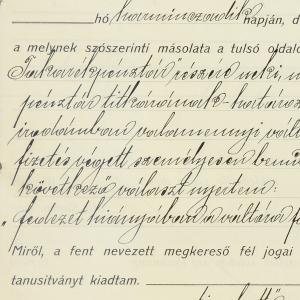 hó harminczadik napján, d
a melynek szószerinti másolata a tulsó oldalo
Takarékpénztár részére neki, m
pénztár titkárának határoz
irodámban valamennyi vált
fizetés végett személyesen bemu
következő választ nyertem:
"fedezet hiányában a váltóra f
Miről, a fent nevezett megkereső fél jogai
tanusitványt kiadtam.